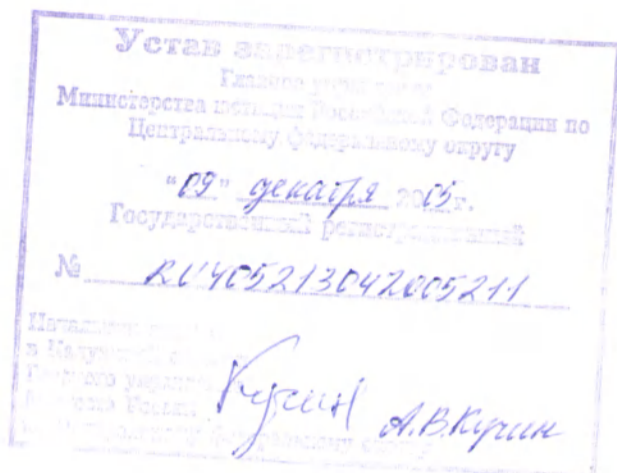 Устав зарегистрирован
Главное управление
Министерства юстиции Российской Федерации по
Центральному федеральному округу
"09" декабря 2005 г.
Государственный регистрационный
№ RU405213042005211
Начальник
в Калужской
Главного
России
федеральному
Кучин А.В.Кучин